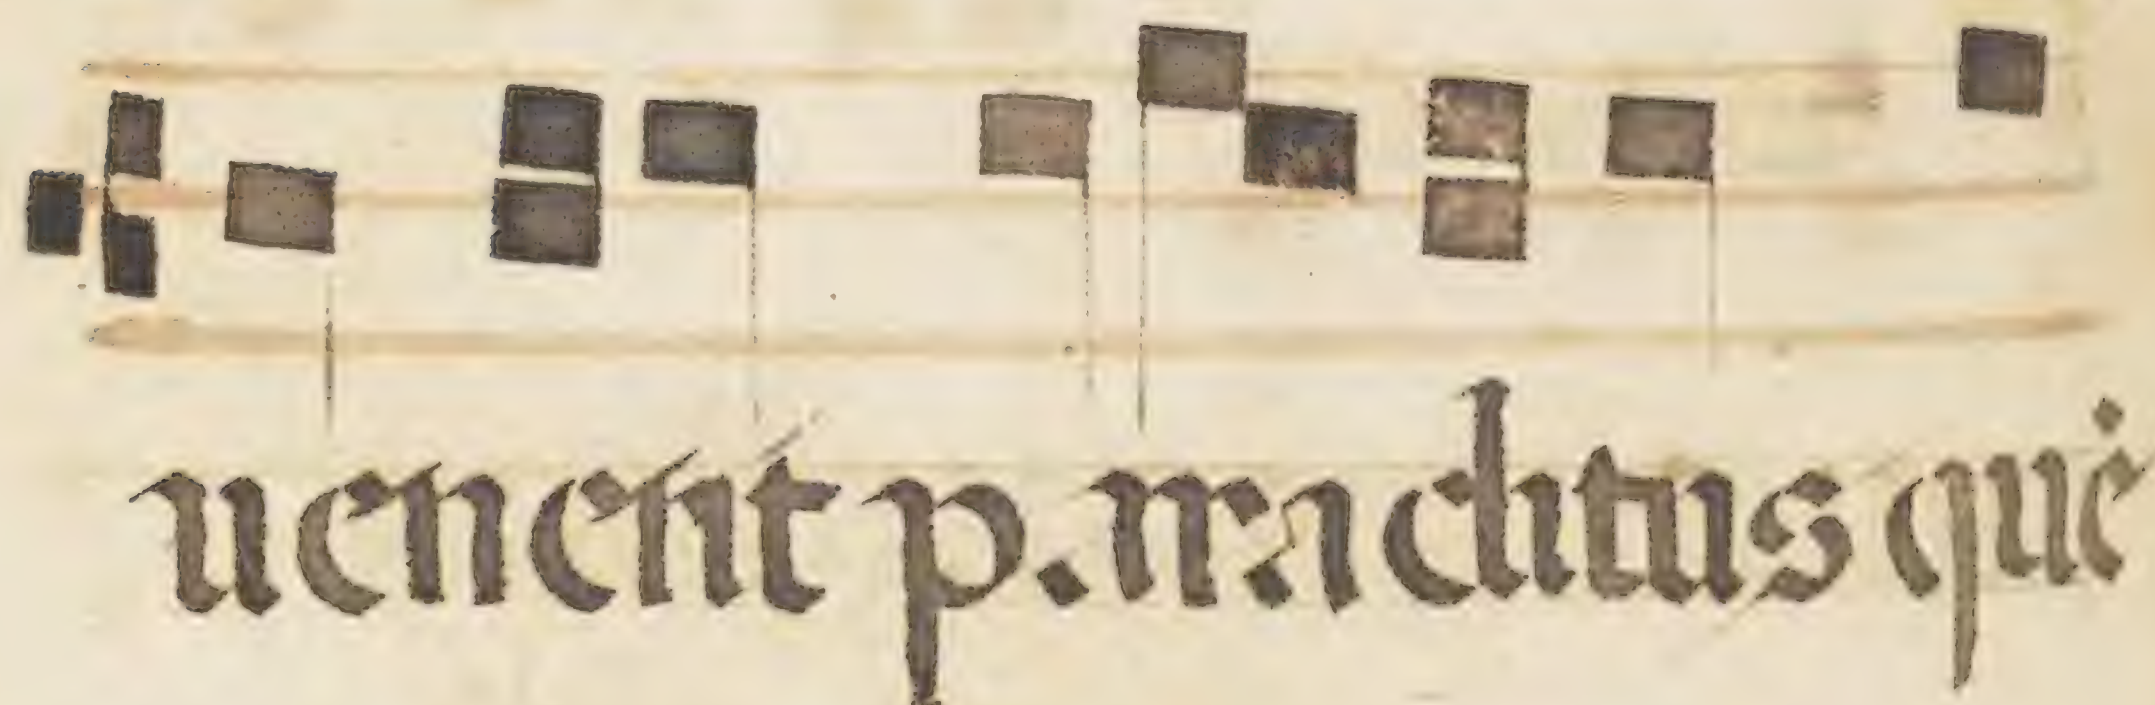 uenerit paraclitus que